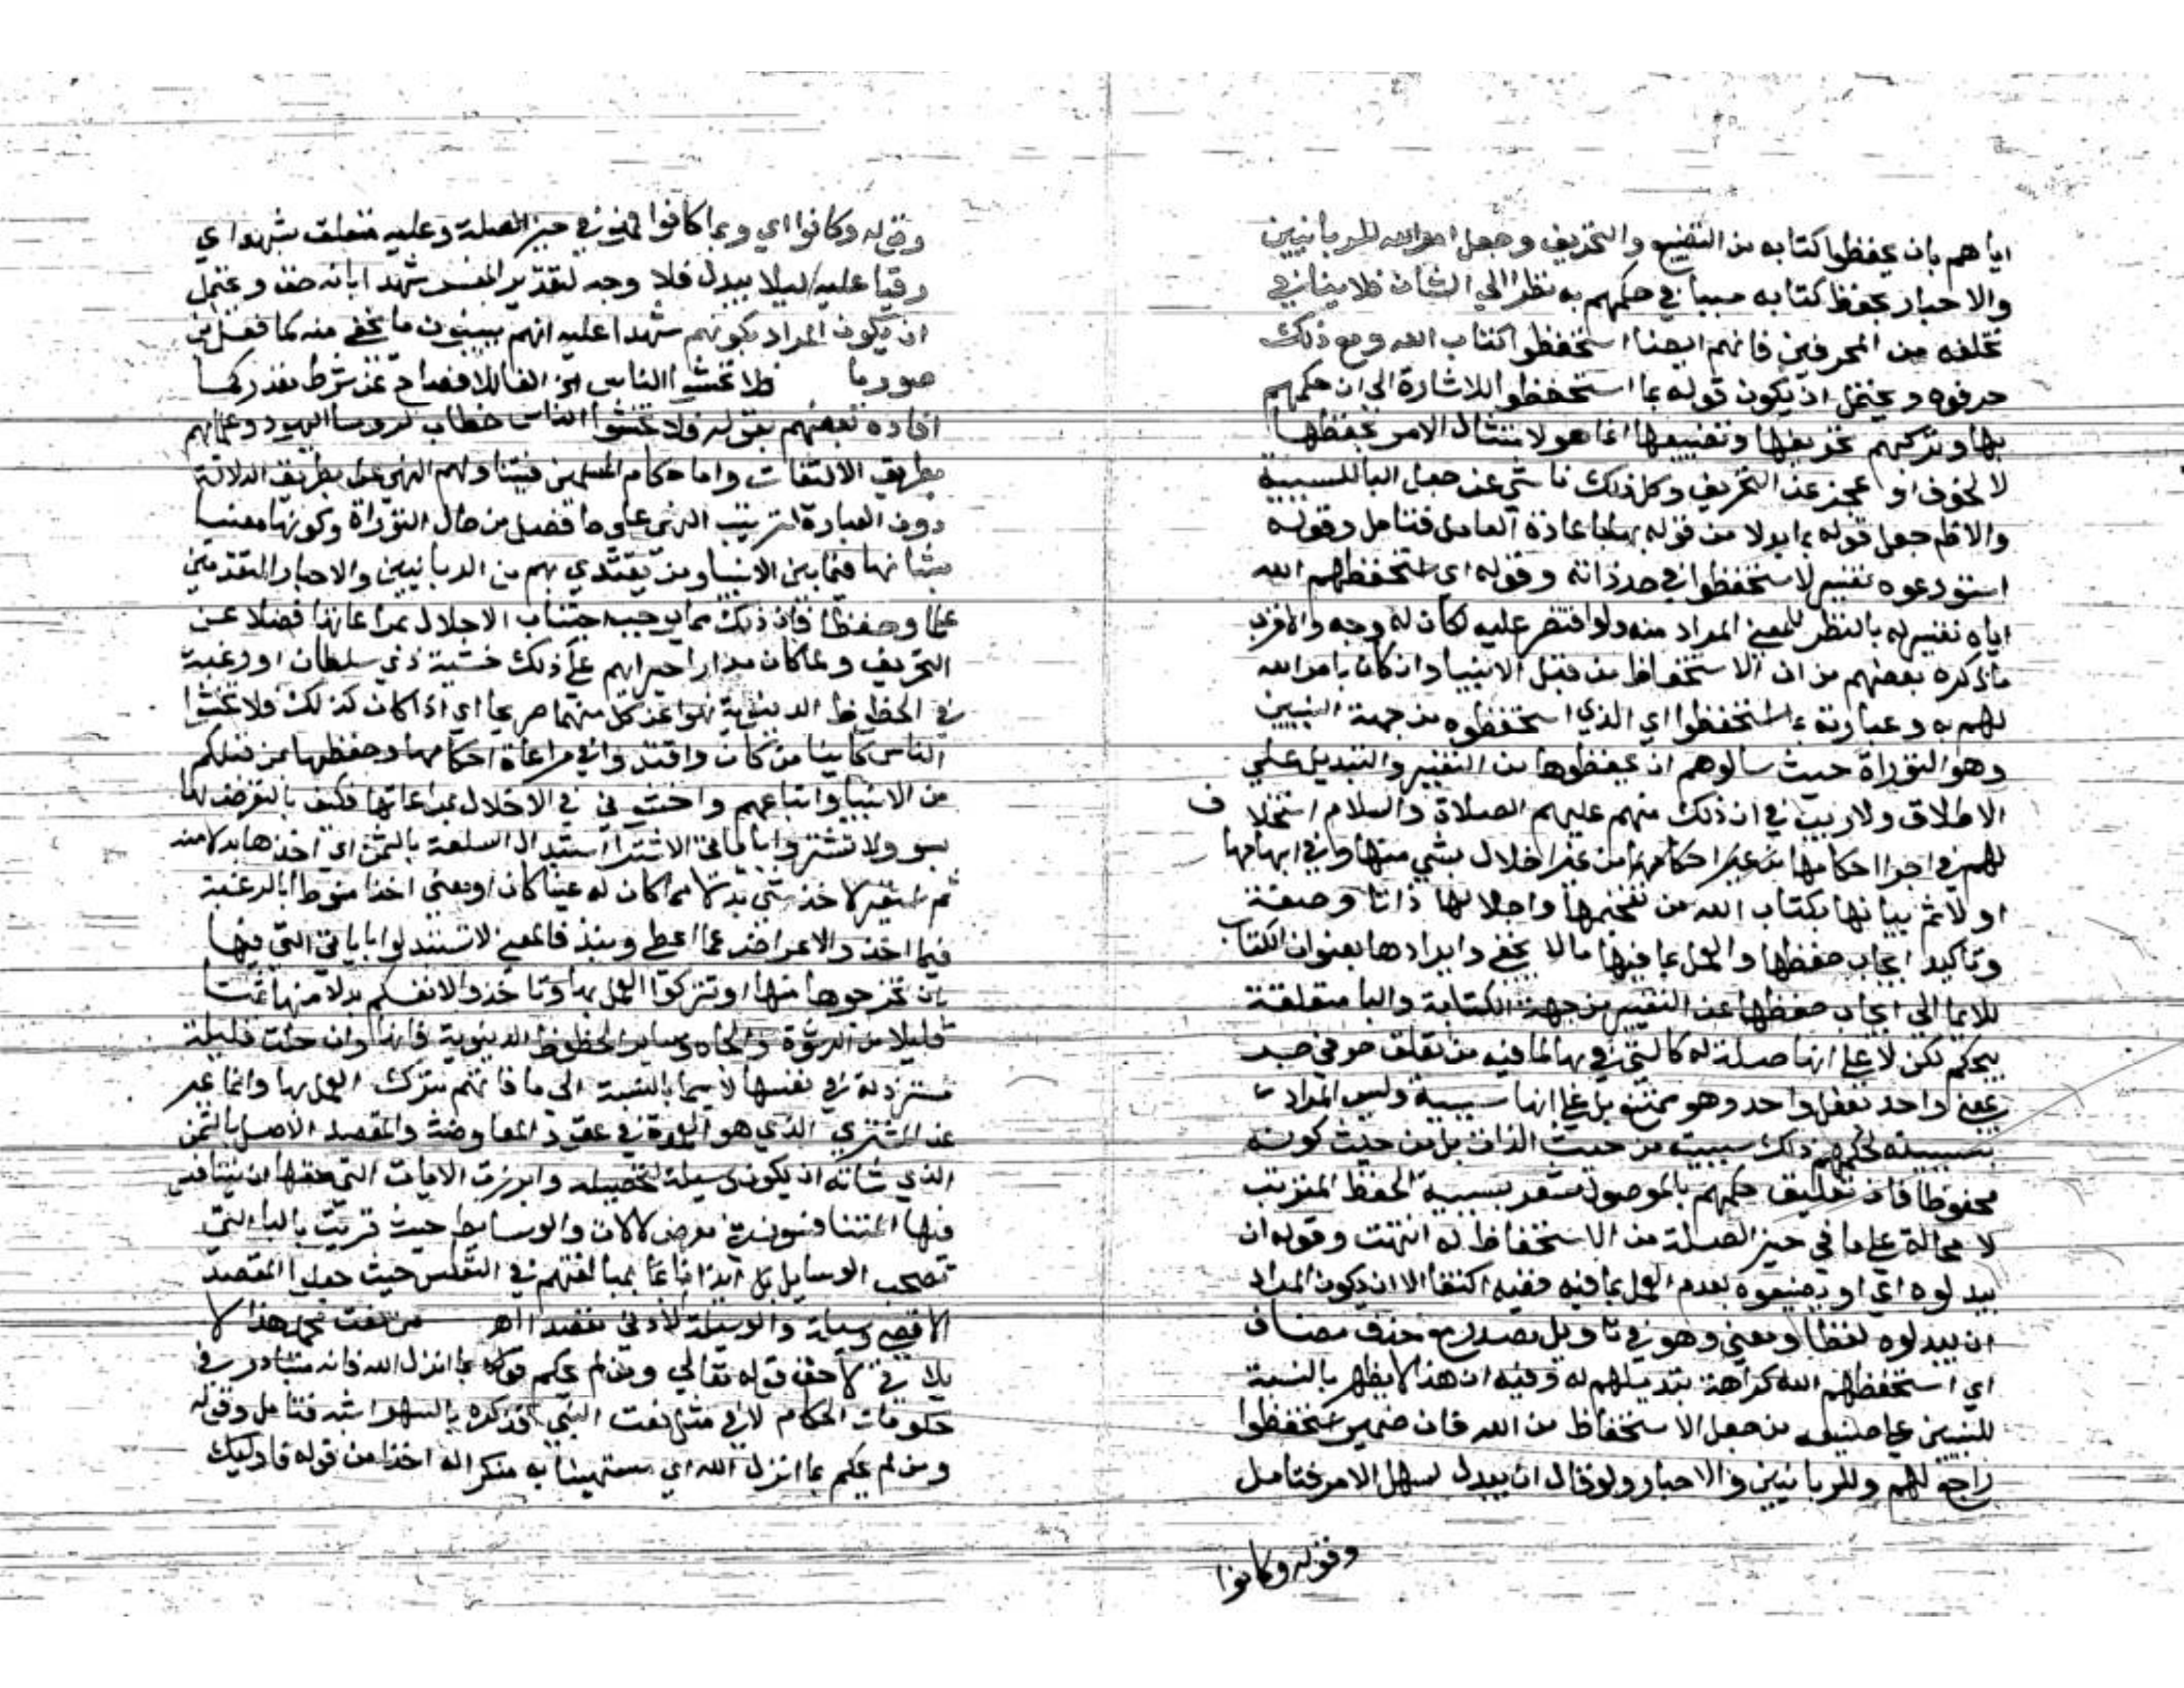 اياهم بان يحفظوا كتابه من التضييع والتحريف وجعل امر الله للربانيين
والاحبار بحفظ كتابه سببا في حكمهم به نظرا الي الشان فلا ينافي
تخلفه من المحرفين فانهم ايضا استحفظوا كتاب الله ومع ذلك
حرفوه ويحتمل ان يكون قوله بما استحفظوا للاشارة الي ان حكمهم
بها وتركهم تحريفها وتضييعها انما هو لامتثال الامر بحفظها
لا لخوف او عجز عن التحريف وكل ذلك ناشي عن جعل البا للسببية
والاظهر جعل قوله بما بدلا من قوله بها باعادة العامل فتامل وقوله
استودعوه تفسير لاستحفظوا في حد ذاته وقوله اي استحفظهم الله
اياه تفسير له بالنظر للمعني المراد منه ولو اقتصر عليه لكان له وجه والاقرب
ما ذكره بعضهم من ان الاستحفاظ من قبل الانبيا وان كان بامر الله
لهم به وعبارته بما استحفظوا اي الذي استحفظوه من جهة النبيين
وهو التوراة حيث سالوهم ان يحفظوها من التغيير والتبديل علي
الاطلاق ولا ريب في ان ذلك منهم عليهم الصلاة والسلام استخلاف
لهم في اجرا احكامها من غير اخلال بشي منها وفي ابهامها
اولا ثم بيانها بكتاب الله من تفخيمها واجلالها ذاتا وصفة
وتاكيد ايجاب حفظها والعمل بما فيها ما لا يخفي وايرادها بعنوان الكتاب
للايما الي ايجاب حفظها عن التغيير من جهة الكتابة والبا متعلقة
بيحكم لكن لا علي انها صلة له كالتي في بها لما فيه من تعلق حرفي جر
بمعني واحد بفعل واحد وهو ممتنع بل علي انها سببية وليس المراد
بسببيته لحكمهم ذلك سببيته من حيث الذات بل من حيث كونه
محفوظا فان تعليق حكمهم بالموصول مشعر بسببية الحفظ المترتب
لا محالة علي ما في حيز الصلة من الاستحفاظ له انتهت وقوله ان
يبدلوه اي او يضيعوه بعدم العمل بما فيه ففيه اكتفا الا ان يكون المراد
ان يبدلوه لفظا ومعني وهو في تاويل مصدر مع حذف مضاف
اي استحفظهم الله كراهة تبديلهم له وفيه ان هذا لا يظهر بالنسبة
للنبيين علي من جعل الاستحفاظ من الله فان ضمير استحفظوا
راجع لهم وللربانيين والاحبار ولو قال ان يبدل لسهل الامر فتامل
وقوله وكانوا
وقوله وكانوا اي وبما كانوا فهو في حيز الصلة وعليه متعلق بشهدا اي
رقبا عليه ليلا يبدل فلا وجه لتقدير المفسر شهدا بانه حق ويحتمل
ان يكون المراد بكونهم شهدا عليه انهم يبينون ما يخفي منه كما فعل ابن
صوريا فلا تخشوا الناس الخ الفا للافصاح عن شرط مقدر كما
افاده بعضهم بقوله فلا تخشوا الناس خطاب لروسا اليهود وعلمايهم
بطريق الالتفات واما حكام المسلمين فيتناولهم النهي بطريق الدلالة
دون العبارة لترتيب النهي علي ما فصل من حال التوراة وكونها معتني
بشانها فيما بين الانبيا ومن يقتدي بهم من الربانيين والاحبار المتقدمين
عملا وحفظا فان ذلك مما يوجب اجتناب الاخلال بمراعاتها فضلا عن
التحريف ولما كان مدار جراتهم علي ذلك خشية ذي سلطان او رغبة
في الحظوظ الدنيوية نهوا عن كل منهما صريحا اي اذا كان كذلك فلا تخشوا
الناس كاينا من كان واقتدوا في مراعاة احكامها وحفظها بمن قبلكم
من الانبيا واتباعهم واخشوني في الاخلال بمراعاتها فكيف بالتعرض لها
بسوء ولا تشتروا باياتي الاشترا استبدال السلعة بالثمن اي اخذها بدلا منه
ثم استعير لاخذ شي بدلا مما كان له عينا كان او معني اخذا منوطا بالرغبة
فيما اخذ والاعراض عما اعطي ونبذ فالمعني لا تستبدلوا باياتي التي فيها
بان تخرجوها منها او تتركوا العمل بها وتاخذوا لانفسكم بدلا منها ثمنا
قليلا من الرشوة والجاه وساير الحظوظ الدنيوية فانها وان جلت قليلة
مسترذلة في نفسها لا سيما بالنسبة الي ما فاتهم بترك العمل بها وانما عبر
عن المشتري الذي هو العمدة في عقود المعاوضة والمقصد الاصلي بالثمن
الذي شانه ان يكون وسيلة لتحصيله وابرزت الايات التي حقها ان يتنافس
فيها المتنافسون في معرض الالات والوسايط حيث قرنت بالبا التي
تصحب الوسايل ايذانا بمبالغتهم في التعكيس حيث جعلوا المقصد
الاقصي وسيلة والوسيلة الادني مقصدا اهـ من نعت محمد هذا لا
يلايم لاحق قوله تعالي ومن لم يحكم بما انزل الله فانه متبادر في
حكومات الحكام لا في مثل نعت النبي فذكره بالسهو اشبه فتامل وقوله
ومن لم يحكم بما انزل الله اي مستهينا به منكرا له اخذا من قوله فاوليك